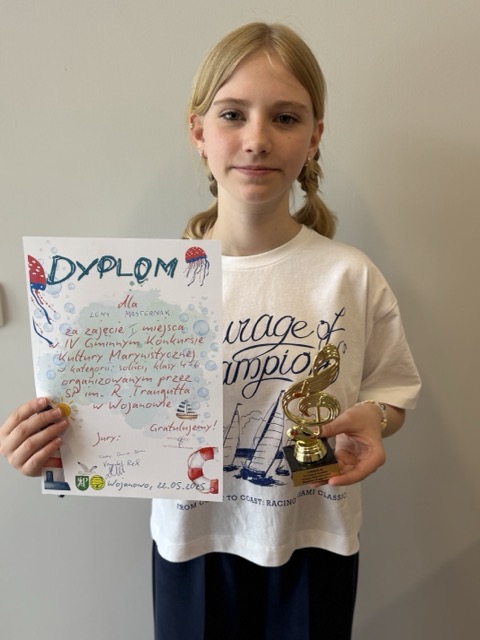 DYPLOM
dla
LENY MASTERNAK
za zajęcie I miejsca
w IV Gminnym Konkursie
Kultury Marynistycznej
w kategorii soliści, klasy 4-6
organizowanym przez
SP im. R. Traugutta
w Wojanowie
Gratulujemy!
Jury:
Wojanowo, 22.05.2025
urage of
ampion
TO COAST: RACING
AMI CLASSIC